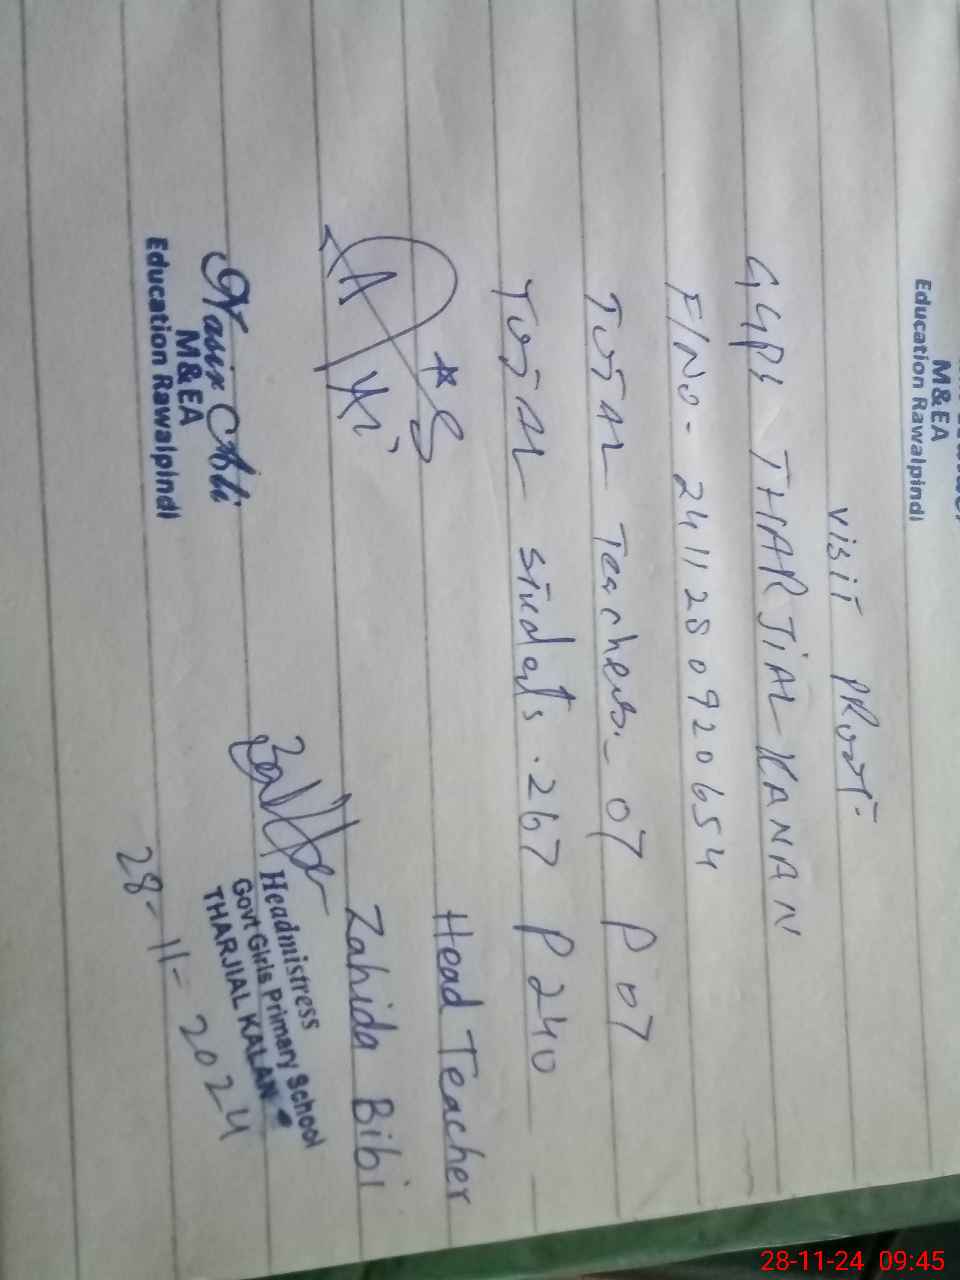 M&EA
Education Rawalpindi
visit PRooT.
GGPS THARJIAL KANAN
F/No- 24112809206 54
TOTAL Teachers- 07 P 07
TOTAL students. 267 P 240
Head Teacher
Zahida Bibi
Nasir Ali
M&EA
Education Rawalpindi
Headmistress
Govt Girls Primary School
THARJIAL KALAN
28-11-2024
28-11-24 09:45